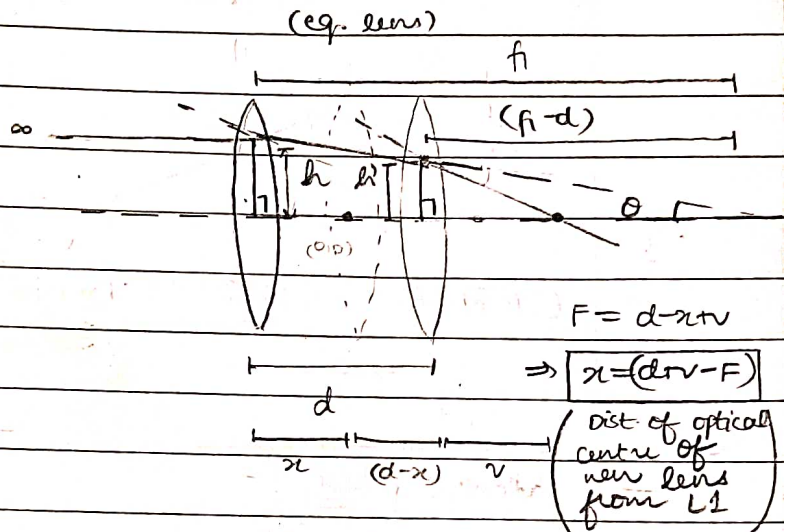 (eq. lens)
f1
(f1-d)
∞
h
h'
θ
(0,0)
F = d-x+v
d
⇒ x=(d+v-F)
x
(d-x)
v
(Dist. of optical
centre of
new lens
from L1)